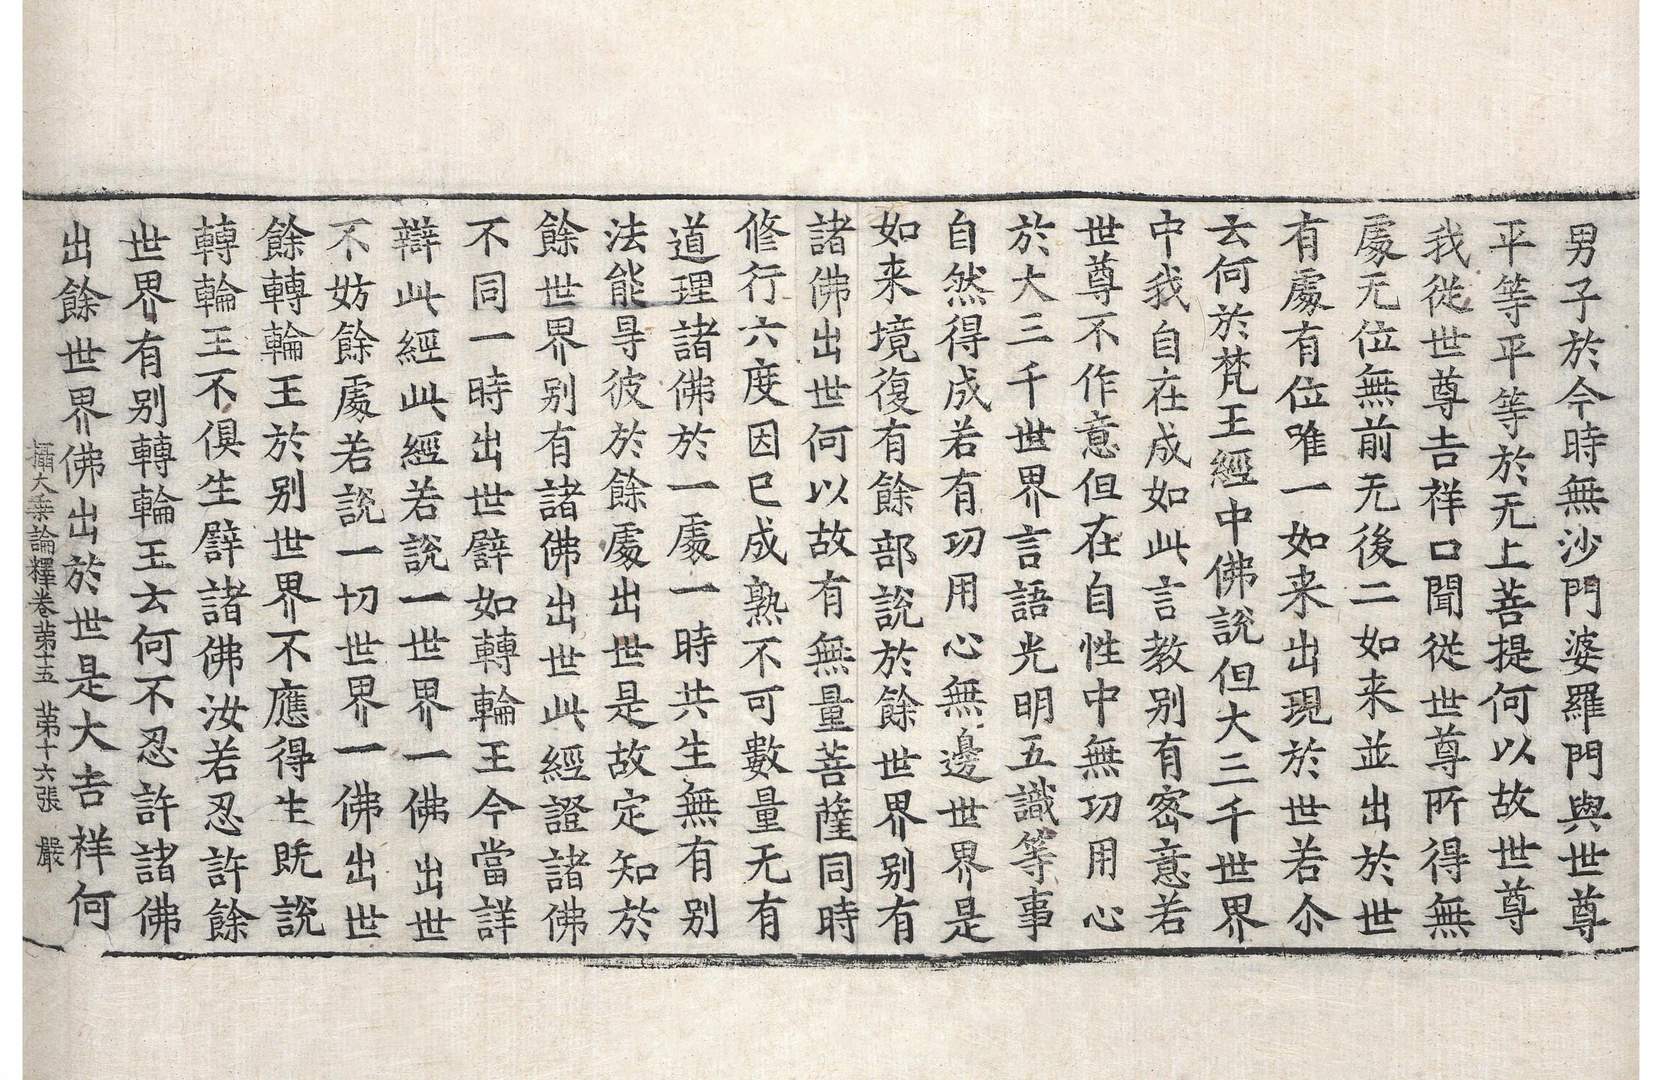 男子於今時無沙門婆羅門與世尊
平等平等於无上菩提何以故世尊
我從世尊吉祥口聞從世尊所得無
處无位無前无後二如来並出於世
有處有位唯一如来出現於世若尒
云何於梵王經中佛説但大三千世界
中我自在成如此言教别有密意若
世尊不作意但在自性中無功用心
於大三千世界言語光明五識等事
自然得成若有功用心無邊世界是
如来境復有餘部説於餘世界别有
諸佛出世何以故有無量菩薩同時
修行六度因已成熟不可數量无有
道理諸佛於一處一時共生無有别
法能㝵彼於餘處出世是故定知於
餘世界别有諸佛出世此經證諸佛
不同一時出世譬如轉輪王今當詳
辯此經此經若説一世界一佛出世
不妨餘處若説一切世界一佛出世
餘轉輪王於别世界不應得生既説
轉輪王不俱生譬諸佛汝若忍許餘
世界有别轉輪王云何不忍許諸佛
出餘世界佛出於世是大吉祥何
攝大乗論釋卷苐十五　苐十六張　嚴